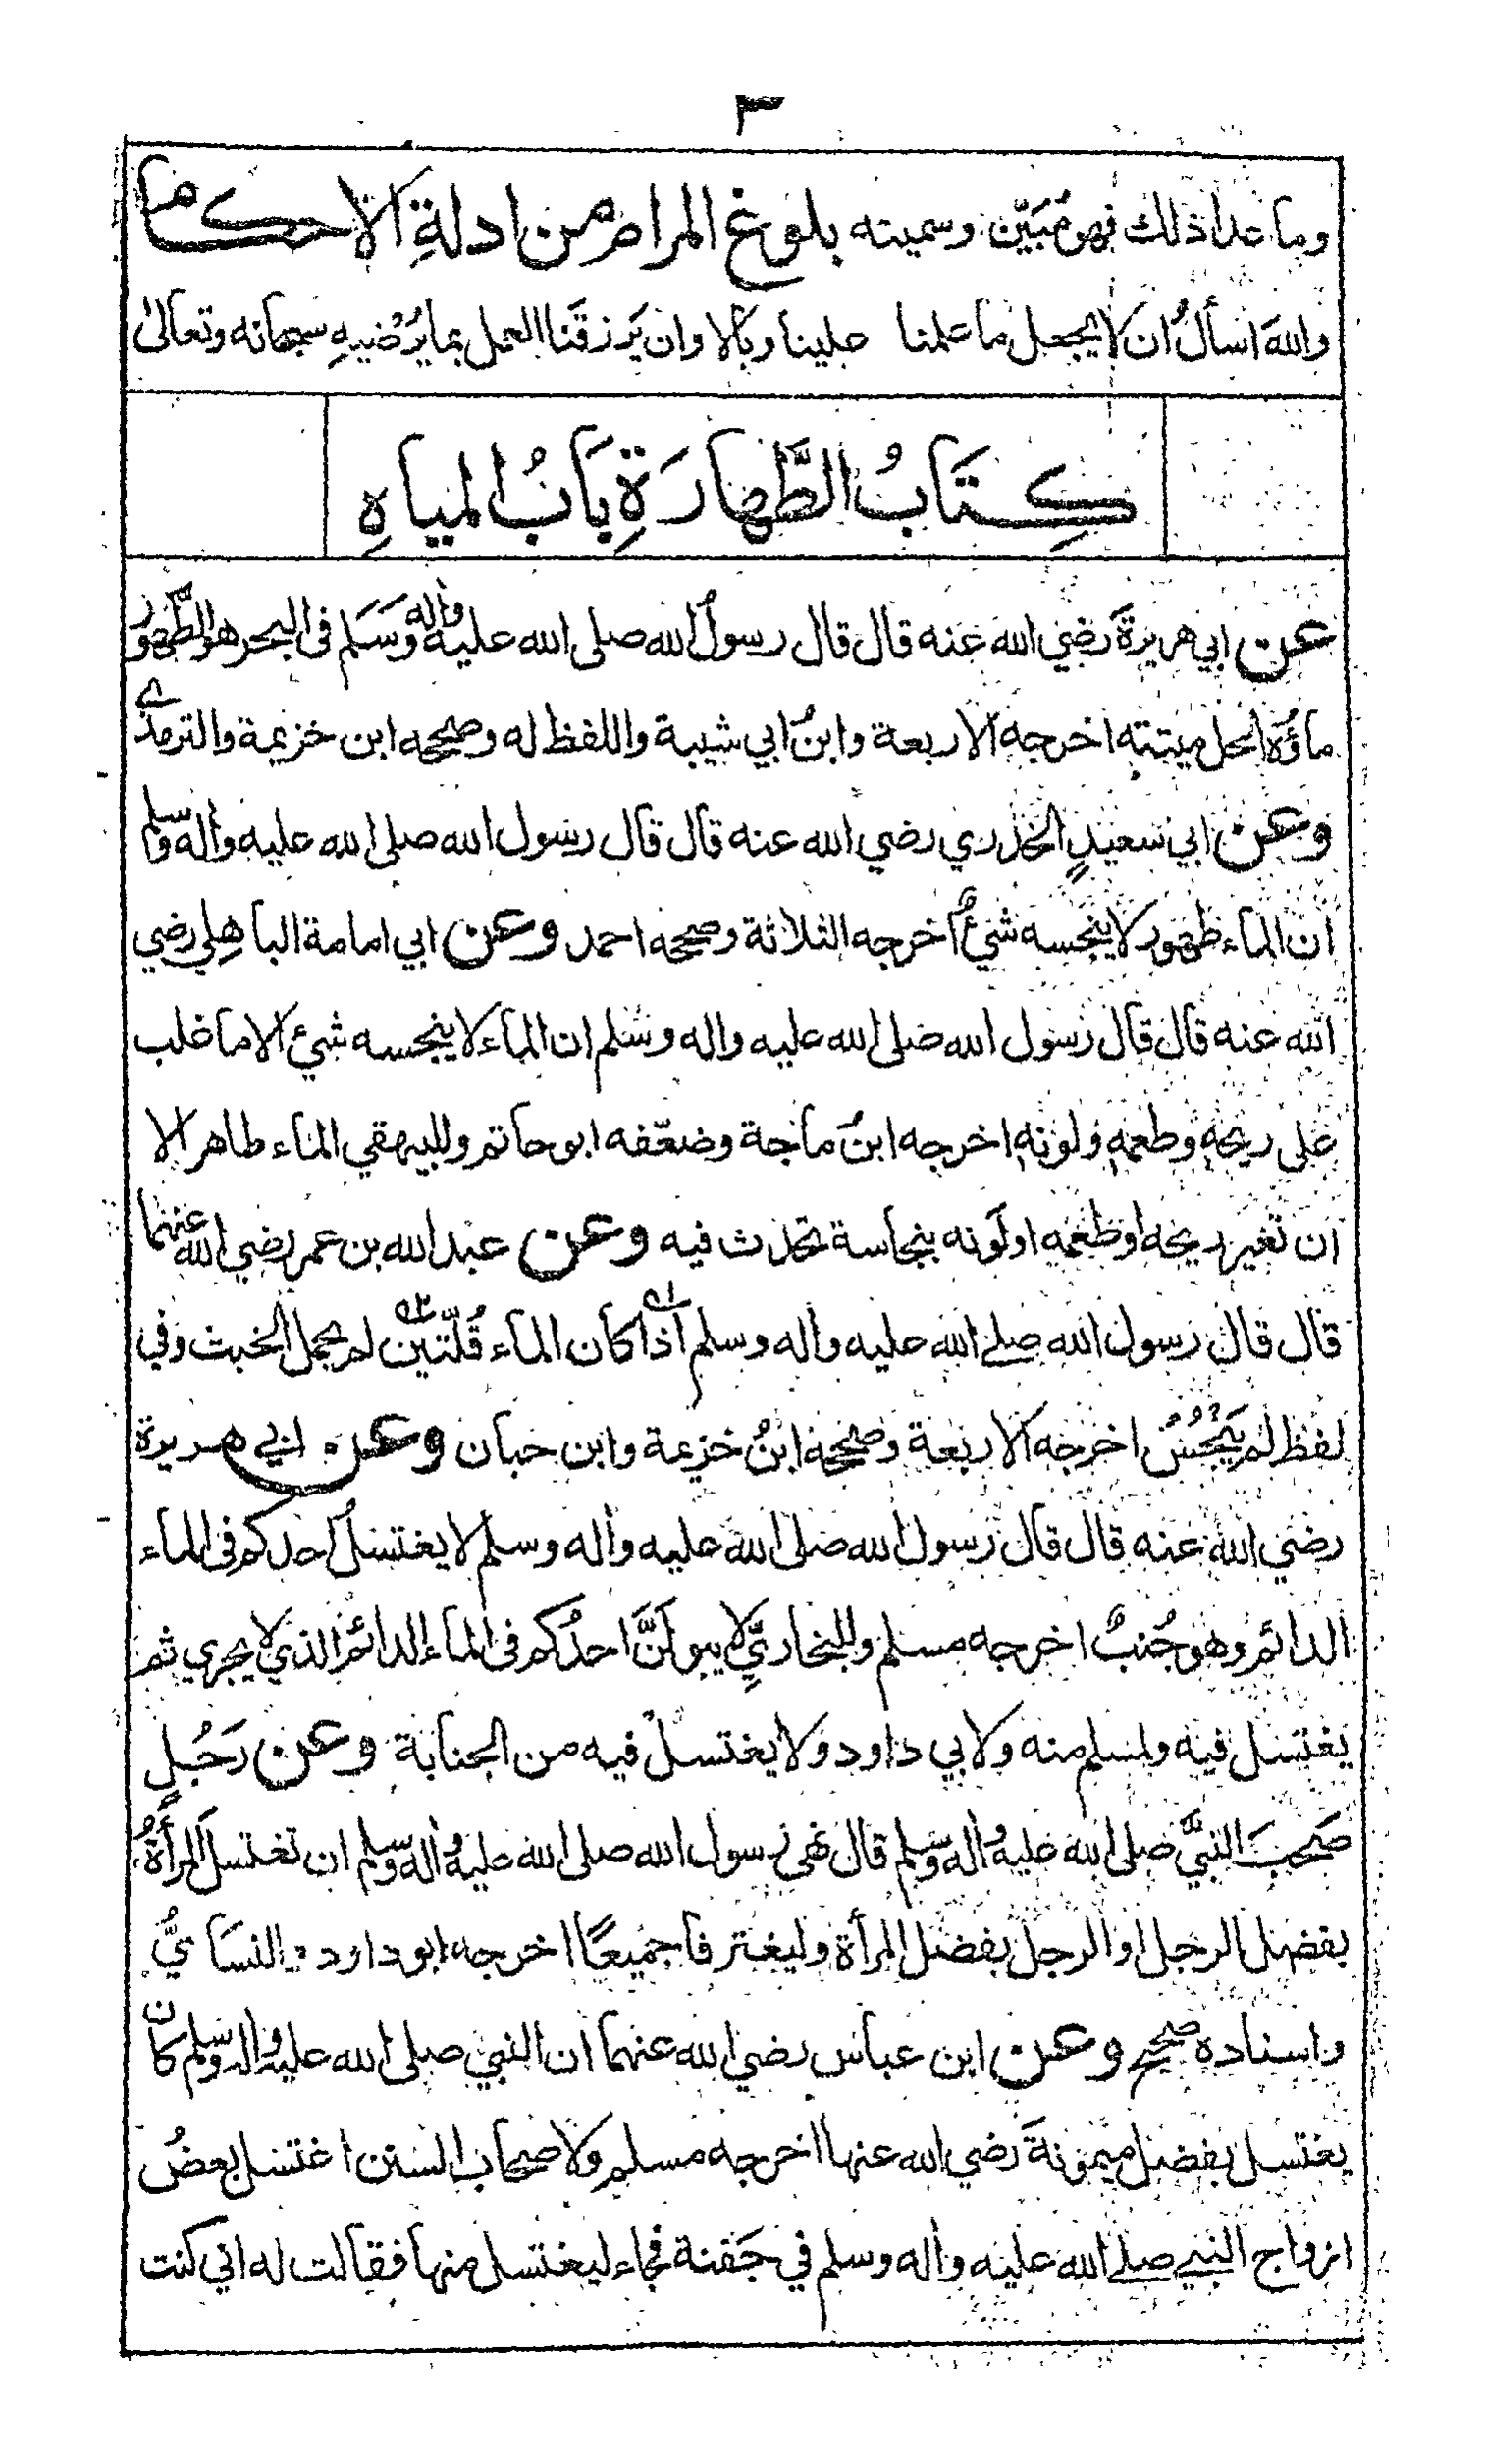 ٣
وما عدا ذلك فهو مُبَيَّن وسميته بلوغ المرام من ادلةِ الاحكام
واللهَ اسألُ ان لا يجعل ما علمنا علينا وبالا وان يَرزقَنا العمل بما يُرْضيهِ سبحانه وتعالىٰ
كِتَابُ الطَّهارَةِ بَابُ المياهِ
عن ابي هريرةَ رضي الله عنه قال قال رسولُ الله صلى الله عليه واله وَسَلم فى البحر هو الطَّهور
ماؤُه الحل ميتته اخرجه الاربعة وابنُ ابي شيبة واللفظ له وصححه ابن خزيمة والترمذي
وعن ابي سعيدٍ الخدري رضي الله عنه قال قال رسول الله صلى الله عليه واله وسلم
ان الماء طهور لا ينجسه شيءٌ اخرجه الثلاثة وصححه احمد وعن ابي امامة الباهِلي رضي
الله عنه قال قال رسول الله صلى الله عليه واله وسلم ان الماء لا ينجسه شيء الا ما غلب
على ريحهِ وطعمهِ ولونهِ اخرجه ابنُ ماجة وضعّفه ابو حاتم وللبيهقي الماء طاهر الا
ان تغير ريحه او طعمه او لونه بنجاسة تحدث فيه وعن عبد الله بن عمر رضي الله عنهما
قال قال رسول الله صلے الله عليه واله وسلم اذا كان الماء قُلّتين لم يحمل الخبث وفي
لفظ لم يَنْجُسْ اخرجه الاربعة وصححه ابنُ خزيمة وابن حبان وعن ابي هريرة
رضي الله عنه قال قال رسول الله صلى الله عليه واله وسلم لا يغتسلُ احدكم فى الماء
الدائم وهو جُنبٌ اخرجه مسلم وللبخاريِّ لا يبولَنَّ احدُكم فى الماء الدائم الذي لا يجري ثم
يغتسل فيه ولمسلم منه ولابي داود ولا يغتسلْ فيه من الجنابة وعن رَجُلٍ
صَحِبَ النبيَّ صلى الله عليه واله وسلم قال نهى رسول الله صلى الله عليه واله وسلم ان تغتسل المرأةُ
بفضل الرجل او الرجل بفضل المرأة وليغترفا جميعًا اخرجه ابو داود والنسايُّ
واسناده صحيح وعن ابن عباس رضي الله عنهما ان النبي صلى الله عليه واله وسلم كان
يغتسل بفضل ميمونةَ رضي الله عنها اخرجه مسلم ولاصحاب السنن اغتسل بعضُ
ازواج النبي صلے الله عليه واله وسلم في جَفنة فجاء ليغتسل منها فقالت له اني كنت